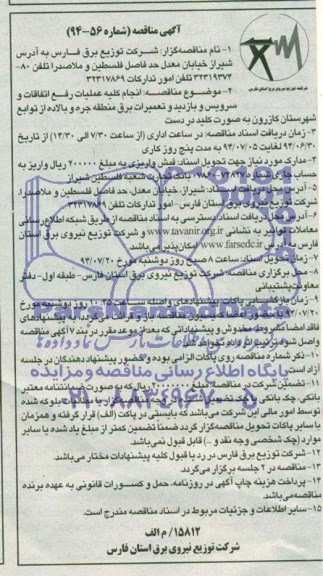 آگهی مناقصه (شماره ۵۶-۹۴)
شرکت توزیع نیروی برق استان فارس
۱- نام مناقصه‌گزار: شرکت توزیع برق فارس به آدرس
شیراز خیابان معدل حد فاصل فلسطین و ملاصدرا تلفن ۸۰-
۳۲۳۱۹۳۷۳ تلفن امور تدارکات ۳۲۳۱۷۸۶۹
۲- موضوع مناقصه: انجام کلیه عملیات رفع اتفاقات و
سرویس و بازدید و تعمیرات برق منطقه جره و بالاده از توابع
شهرستان کازرون به صورت کلید در دست
۳- زمان دریافت اسناد مناقصه: در ساعت اداری (از ساعت ۷/۳۰ الی ۱۳/۳۰) از تاریخ
۹۴/۰۶/۳۰ لغایت ۹۴/۰۷/۰۵ به مدت پنج روز کاری
۴- مدارک مورد نیاز جهت تحویل اسناد: فیش واریزی به مبلغ ۲۰۰۰۰۰ ریال واریز به
حساب جاری شماره بانک تجارت شعبه فلسطین شیراز
۵- آدرس محل دریافت اسناد: شیراز، خیابان معدل، حد فاصل فلسطین و ملاصدرا،
شرکت توزیع نیروی برق استان فارس- امور تدارکات تلفن ۳۲۳۱۷۸۶۹
۶- آدرس محل دریافت اسناد: دسترسی به اسناد مناقصه از طریق شبکه اطلاع رسانی
معاملات توانیر به نشانی www.tavanir.org.ir و شرکت توزیع نیروی برق استان
فارس به آدرس www.farsedc.ir امکان‌پذیر می‌باشد.
۷- زمان تحویل اسناد: ساعت ۸ صبح روز دوشنبه مورخ ۹۴/۰۷/۲۰
۸- محل برگزاری مناقصه: شرکت توزیع نیروی برق استان فارس- طبقه اول- دفتر
معاونت پشتیبانی
۹- زمان بازگشایی پاکات: پیشنهادهای واصله ساعت ۱۰:۲۵ روز دوشنبه مورخ
۹۴/۰۷/۲۰ با حضور اعضای کمیسیون مناقصه باز و
فاقد امضا، مشروط، مخدوش و پیشنهاداتی که بعد از موعد مقرر در بند ۷ آگهی مناقصه
واصل شود ترتیب اثر داده نخواهد شد
۱۰- ذکر شماره مناقصه روی پاکات الزامی بوده و حضور پیشنهاددهندگان در جلسه
آزاد است
۱۱- تضمین شرکت در مناقصه: مبلغ ریال که به صورت ضمانتنامه معتبر
بانکی، چک بانکی
توسط امور مالی این شرکت می‌باشد که بایستی در پاکت (الف) قرار گرفته و همزمان
با سایر پاکات تحویل مناقصه‌گزار گردد ضمناً تضمین کمتر از مبلغ یاد شده یا سایر
موارد (چک شخصی وجه نقد و ...) قابل قبول نمی‌باشد.
۱۲- شرکت توزیع برق فارس در رد یا قبول کلیه پیشنهادات مختار می‌باشد.
۱۳- مناقصه در ۲ جلسه برگزار می‌گردد.
۱۴- پرداخت هزینه چاپ آگهی در روزنامه، حمل و کسورات قانونی به عهده برنده
مناقصه می‌باشد.
۱۵- سایر اطلاعات و جزئیات مربوط در اسناد مناقصه مندرج است.
۱۵۸۱۲/ م الف
شرکت توزیع نیروی برق استان فارس
پایگاه اطلاع رسانی مناقصه و مزایده
۰۲۱-۸۸۳۴۹۶۷۰-۵